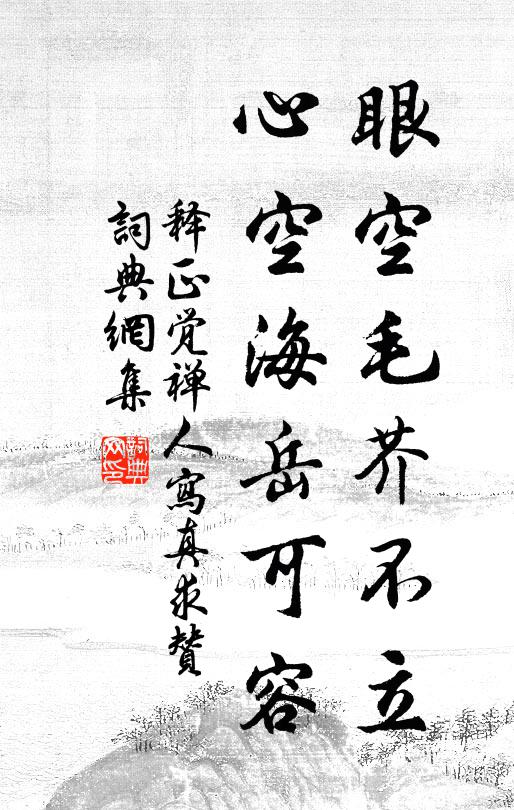 眼空毛芥不立
心空海岳可容
释正觉禅人寫真求贊
詞典網集